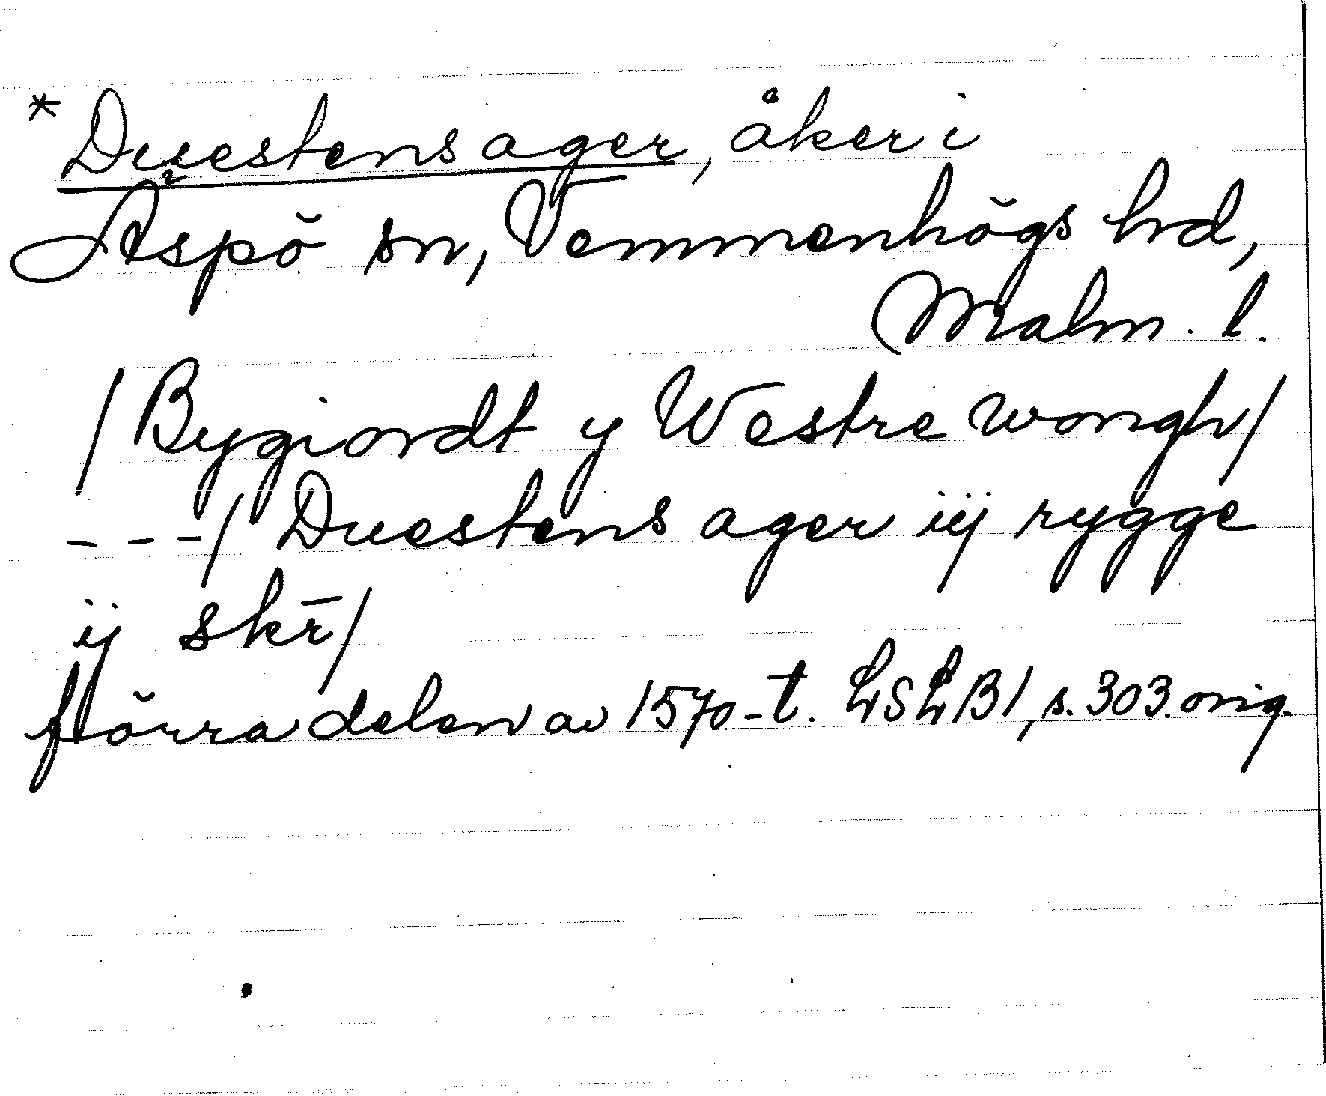 * Duestens ager, åker i
Äspö sn, Vemmenhögs hd,
Malm. l.
/Bygiordt y Westre wongh/
---/ Duestens ager iij rygge
ij skr̄/
förra delen av 1570-t. LSLB1, s. 303. orig.